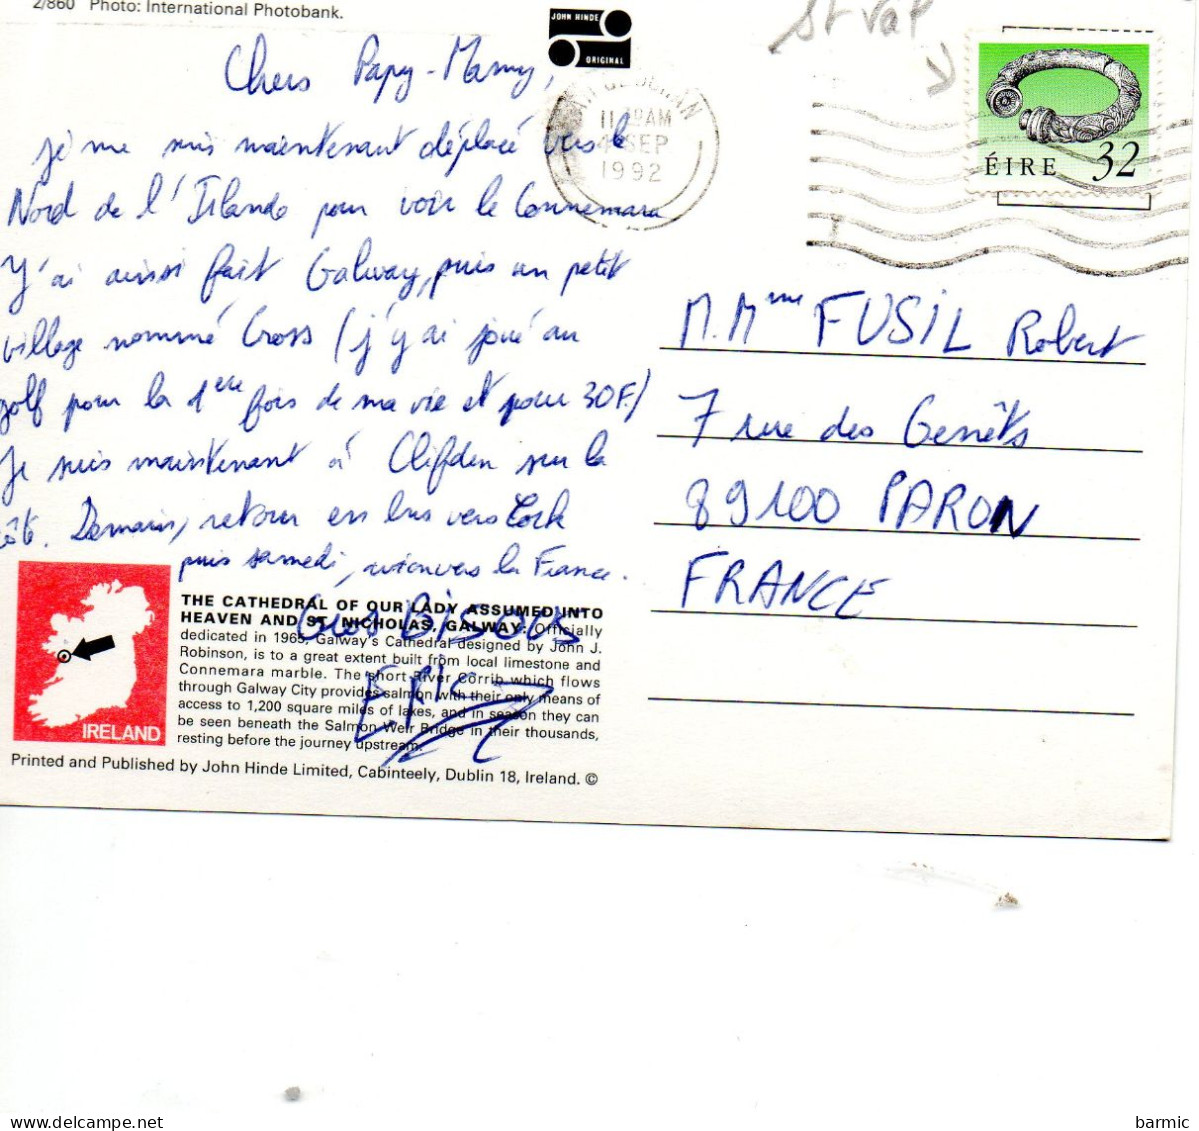 2/860 Photo: International Photobank.
JOHN HINDE
ORIGINAL
St Vap
11 AM
SEP
1992
ÉIRE 32
Chers Papy-Mamy,
je me suis maintenant déplacé vers le
Nord de l'Irlande pour voir le Connemara
J'ai aussi fait Galway, puis un petit
village nommé Cross (j'y ai joué au
golf pour la 1ère fois de ma vie et pour 30F.)
Je suis maintenant à Clifden sur la
côte. Demain, retour en bus vers Cork
puis samedi, avion vers la France.
Gros Bisous
M. Mme FUSIL Robert
7 rue des Genêts
89100 PARON
FRANCE
IRELAND
THE CATHEDRAL OF OUR LADY ASSUMED INTO
HEAVEN AND ST. NICHOLAS, GALWAY: Officially
dedicated in 1965, Galway's Cathedral designed by John J.
Robinson, is to a great extent built from local limestone and
Connemara marble. The short River Corrib which flows
through Galway City provides salmon with their only means of
access to 1,200 square miles of lakes, and in season they can
be seen beneath the Salmon Weir Bridge in their thousands,
resting before the journey upstream.
Printed and Published by John Hinde Limited, Cabinteely, Dublin 18, Ireland. ©
barmic